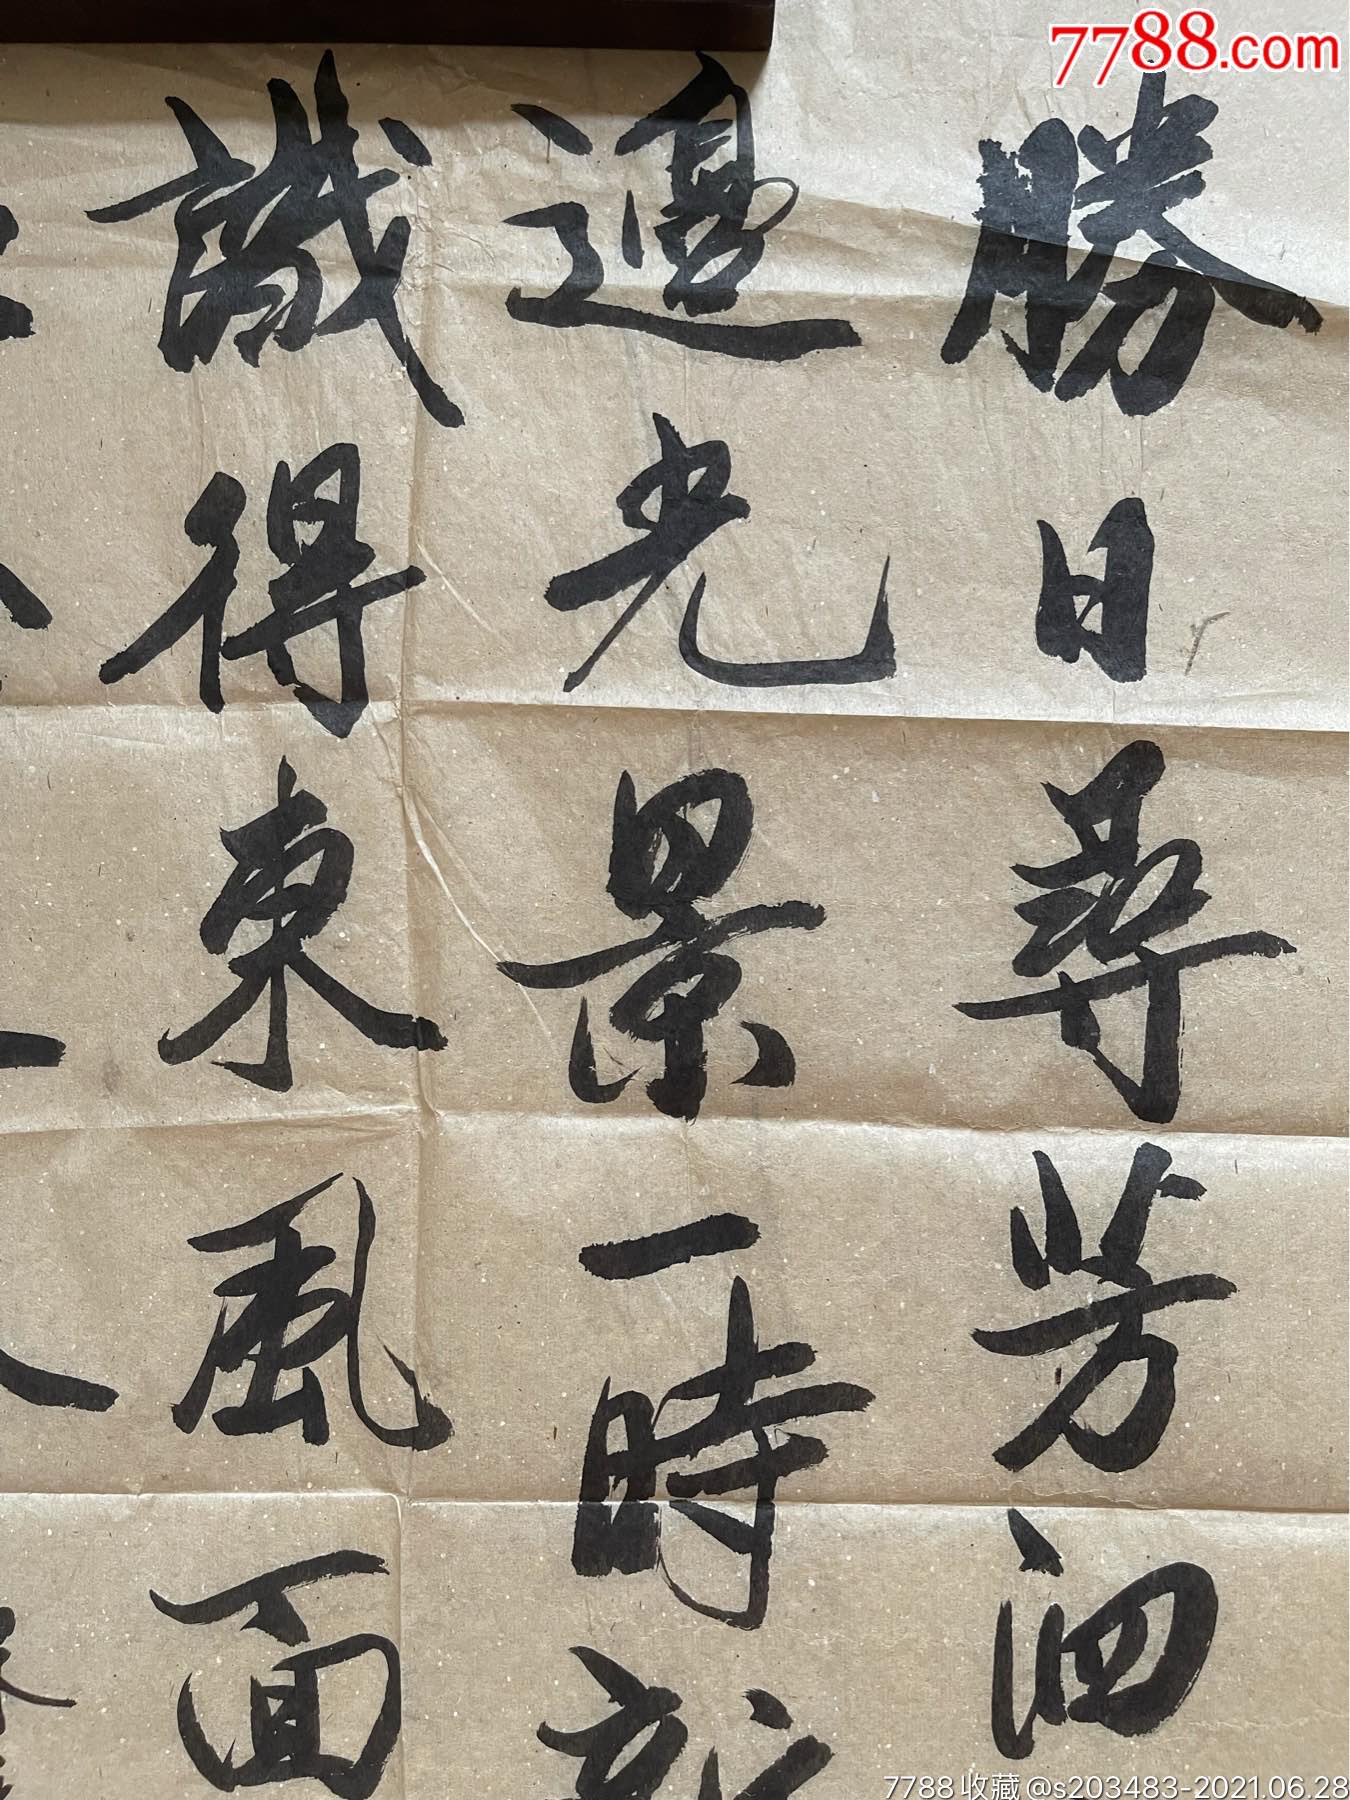 7788.com
勝日尋芳泗
邊光景一時新
識得東風面
7788收藏@s203483-2021.06.28